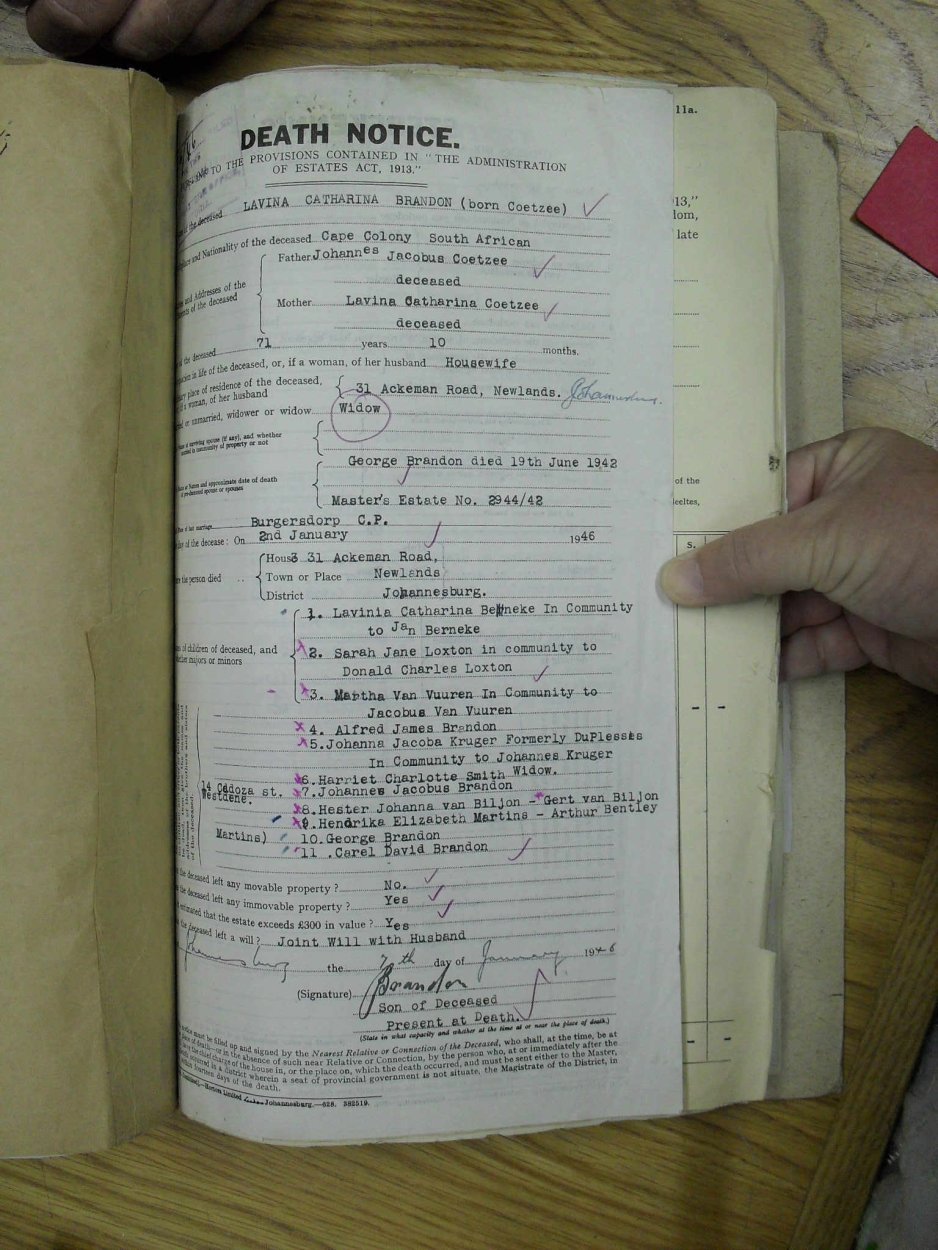 DEATH NOTICE.
TO THE PROVISIONS CONTAINED IN "THE ADMINISTRATION
OF ESTATES ACT, 1913."
of the deceased LAVINA CATHARINA BRANDON (born Coetzee)
and Nationality of the deceased Cape Colony South African
Father Johannes Jacobus Coetzee
deceased
and Addresses of the
of the deceased
Mother Lavina Catharina Coetzee
deceased
of the deceased 71 years 10 months.
in life of the deceased, or, if a woman, of her husband Housewife
place of residence of the deceased,
a woman, of her husband
31 Ackeman Road, Newlands. Johannesburg.
or unmarried, widower or widow Widow
of surviving spouse (if any), and whether
married in community of property or not
George Brandon died 19th June 1942
or Names and approximate date of death
of pre-deceased spouse or spouses
Master's Estate No. 2944/42
Place of last marriage Burgersdorp C.P.
of the decease: On 2nd January 1946
House 31 Ackeman Road,
the person died .. Town or Place Newlands
District Johannesburg.
1. Lavinia Catharina Berneke In Community
to Jan Berneke
of children of deceased, and
whether majors or minors
2. Sarah Jane Loxton in community to
Donald Charles Loxton
3. Martha Van Vuuren In Community to
Jacobus Van Vuuren
4. Alfred James Brandon
5. Johanna Jacoba Kruger Formerly DuPlessis
In Community to Johannes Kruger
6. Harriet Charlotte Smith Widow.
14 Cadoza st. 7. Johannes Jacobus Brandon
Westdene.
8. Hester Johanna van Biljon - Gert van Biljon
9. Hendrika Elizabeth Martins - Arthur Bentley
Martins) 10. George Brandon
11 . Carel David Brandon
the deceased left any movable property ? No.
the deceased left any immovable property ? Yes
estimated that the estate exceeds £300 in value ? Yes
the deceased left a will ? Joint Will with Husband
Johannesburg the 7th day of January 1946
(Signature) Brandon
Son of Deceased
Present at Death.
(State in what capacity and whether at the time at or near the place of death.)
notice must be filled up and signed by the Nearest Relative or Connection of the Deceased, who shall, at the time, be at
place of death—or in the absence of such near Relative or Connection, by the person who, at or immediately after the
the chief charge of the house in, or the place on, which the death occurred, and must be sent either to the Master,
occurred in a district wherein a seat of provincial government is not situate, the Magistrate of the District, in
fourteen days of the death.
Limited Johannesburg.—628. 382519.
11a.
13,"
dom,
late
of the
S.